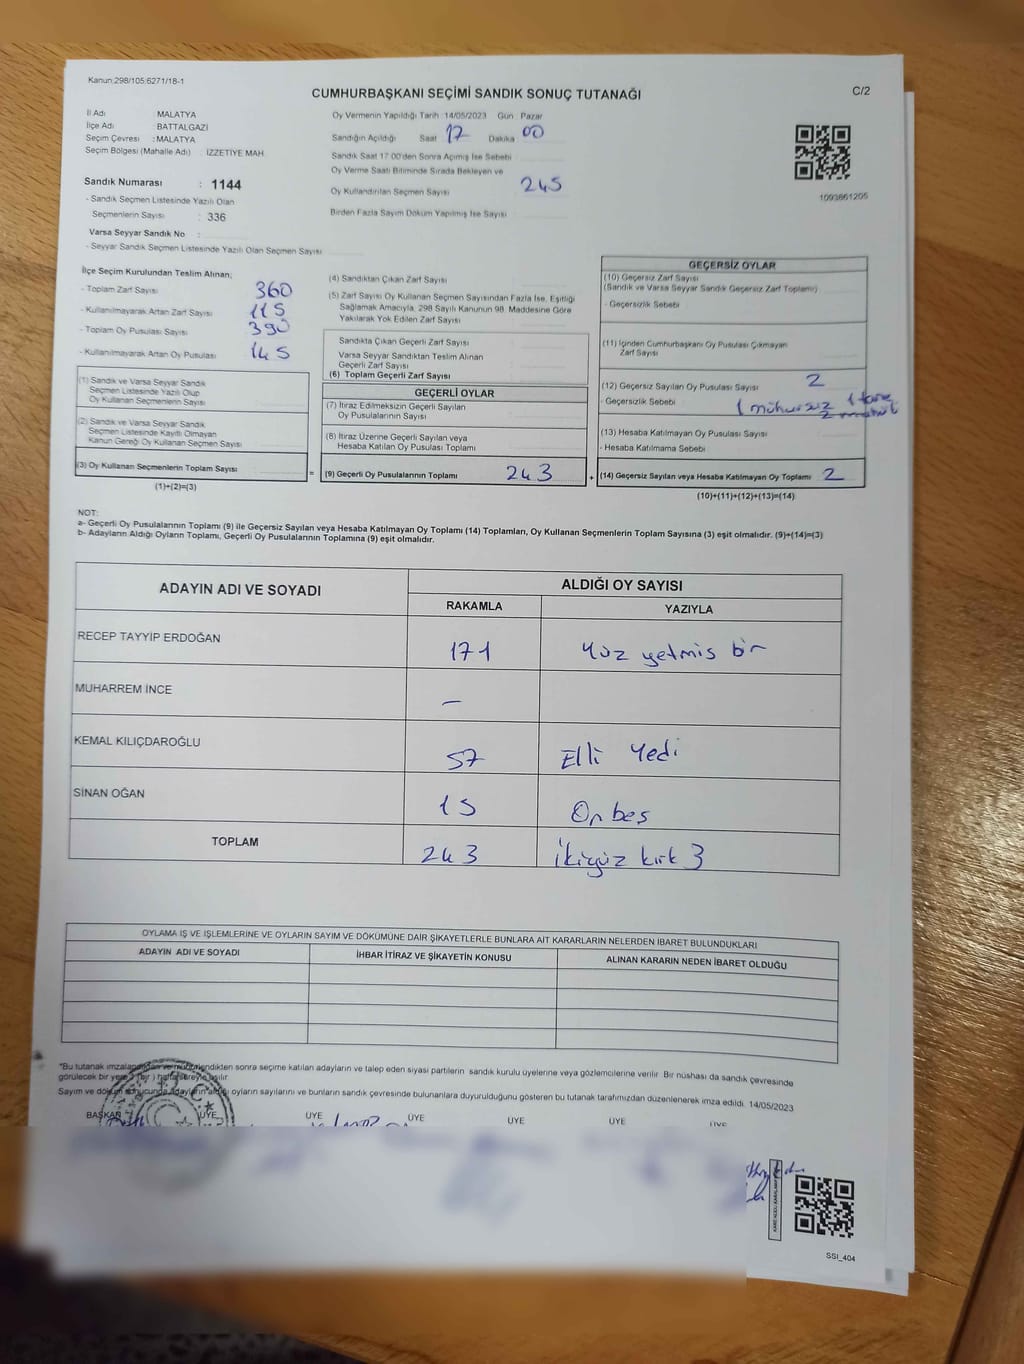 Kanun:298/105;6271/18-1
CUMHURBAŞKANI SEÇİMİ SANDIK SONUÇ TUTANAĞI
C/2
İl Adı : MALATYA
İlçe Adı : BATTALGAZİ
Seçim Çevresi : MALATYA
Seçim Bölgesi (Mahalle Adı) : İZZETİYE MAH.
Sandık Numarası : 1144
- Sandık Seçmen Listesinde Yazılı Olan
Seçmenlerin Sayısı : 336
Varsa Seyyar Sandık No :
- Seyyar Sandık Seçmen Listesinde Yazılı Olan Seçmen Sayısı
Oy Vermenin Yapıldığı Tarih :14/05/2023 Gün : Pazar
Sandığın Açıldığı Saat 17 Dakika 00
Sandık Saat 17:00'den Sonra Açımış İse Sebebi
Oy Verme Saati Bitiminde Sırada Bekleyen ve
Oy Kullandırılan Seçmen Sayısı 245
Birden Fazla Sayım Döküm Yapılmış İse Sayısı
1093861205
İlçe Seçim Kurulundan Teslim Alınan;
- Toplam Zarf Sayısı 360
- Kullanılmayarak Artan Zarf Sayısı 115
- Toplam Oy Pusulası Sayısı 390
- Kullanılmayarak Artan Oy Pusulası 145
(1) Sandık ve Varsa Seyyar Sandık
Seçmen Listesinde Yazılı Olup
Oy Kullanan Seçmenlerin Sayısı
(2) Sandık ve Varsa Seyyar Sandık
Seçmen Listesinde Kayıtlı Olmayan
Kanun Gereği Oy Kullanan Seçmen Sayısı
(3) Oy Kullanan Seçmenlerin Toplam Sayısı
(1)+(2)=(3)
(4) Sandıktan Çıkan Zarf Sayısı
(5) Zarf Sayısı Oy Kullanan Seçmen Sayısından Fazla İse, Eşitliği
Sağlamak Amacıyla, 298 Sayılı Kanunun 98. Maddesine Göre
Yakılarak Yok Edilen Zarf Sayısı
Sandıkta Çıkan Geçerli Zarf Sayısı
Varsa Seyyar Sandıktan Teslim Alınan
Geçerli Zarf Sayısı
(6) Toplam Geçerli Zarf Sayısı
GEÇERLİ OYLAR
(7) İtiraz Edilmeksizin Geçerli Sayılan
Oy Pusulalarının Sayısı
(8) İtiraz Üzerine Geçerli Sayılan veya
Hesaba Katılan Oy Pusulası Toplamı
= (9) Geçerli Oy Pusulalarının Toplamı 243
GEÇERSİZ OYLAR
(10) Geçersiz Zarf Sayısı
(Sandık ve Varsa Seyyar Sandık Geçersiz Zarf Toplamı)
- Geçersizlik Sebebi
(11) İçinden Cumhurbaşkanı Oy Pusulası Çıkmayan
Zarf Sayısı
(12) Geçersiz Sayılan Oy Pusulası Sayısı 2
- Geçersizlik Sebebi 1 mühürsüz 1 tane
(13) Hesaba Katılmayan Oy Pusulası Sayısı
- Hesaba Katılmama Sebebi
+ (14) Geçersiz Sayılan veya Hesaba Katılmayan Oy Toplamı 2
(10)+(11)+(12)+(13)=(14)
NOT:
a- Geçerli Oy Pusulalarının Toplamı (9) ile Geçersiz Sayılan veya Hesaba Katılmayan Oy Toplamı (14) Toplamları, Oy Kullanan Seçmenlerin Toplam Sayısına (3) eşit olmalıdır. (9)+(14)=(3)
b- Adayların Aldığı Oyların Toplamı, Geçerli Oy Pusulalarının Toplamına (9) eşit olmalıdır.
ADAYIN ADI VE SOYADI
ALDIĞI OY SAYISI
RAKAMLA YAZIYLA
RECEP TAYYİP ERDOĞAN 171 Yüz yetmis bir
MUHARREM İNCE –
KEMAL KILIÇDAROĞLU 57 Elli Yedi
SİNAN OĞAN 15 On bes
TOPLAM 243 İkiyüz kırk 3
OYLAMA İŞ VE İŞLEMLERİNE VE OYLARIN SAYIM VE DÖKÜMÜNE DAİR ŞİKAYETLERLE BUNLARA AİT KARARLARIN NELERDEN İBARET BULUNDUKLARI
ADAYIN ADI VE SOYADI İHBAR İTİRAZ VE ŞİKAYETİN KONUSU ALINAN KARARIN NEDEN İBARET OLDUĞU
*Bu tutanak sonra seçime katılan adayların ve talep eden siyasi partilerin sandık kurulu üyelerine veya gözlemcilerine verilir. Bir nüshası da sandık çevresinde
görülecek bir yere
Sayım ve döküm oyların sayılarını ve bunların sandık çevresinde bulunanlara duyurulduğunu gösteren bu tutanak tarafımızdan düzenlenerek imza edildi. 14/05/2023
BAŞKAN ÜYE ÜYE ÜYE ÜYE ÜYE ÜYE
SSİ_404